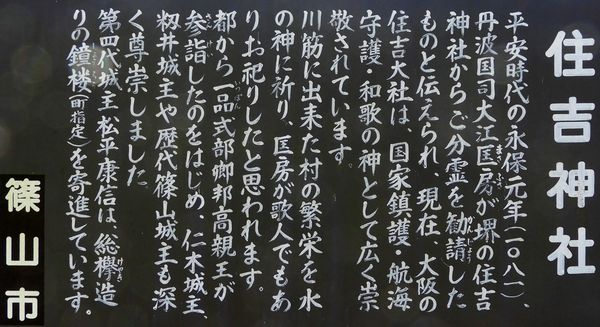 住吉神社
平安時代の永保元年(一〇八一)、
丹波国司大江匡房が堺の住吉
神社からご分霊を勧請した
ものと伝えられ、現在 大阪の
住吉大社は、国家鎮護・航海
守護・和歌の神として広く崇
敬されています。
川筋に出来た村の繁栄を水
の神に祈り、匡房が歌人でもあ
りお祀りしたと思われます。
都から一品式部卿邦高親王が
参詣したのをはじめ、仁木城主、
籾井城主や歴代篠山城主も深
く尊崇しました
第四代城主松平康信は、総欅造
りの鐘楼(町指定)を寄進しています。
篠山市